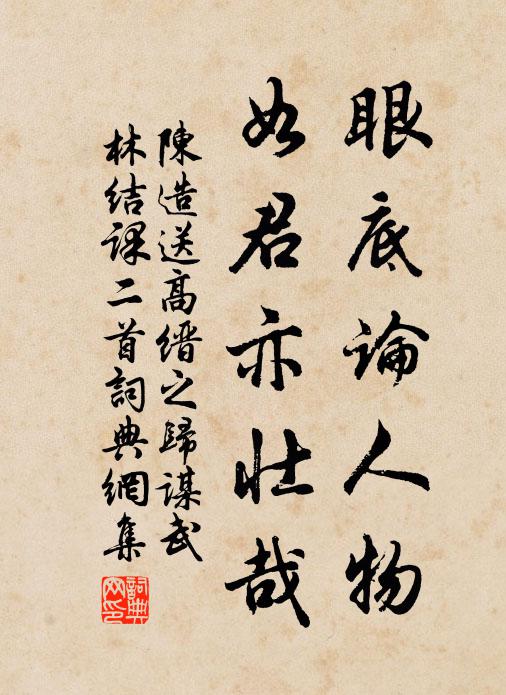 眼底論人物
如君亦壯哉
陳造送高缙之歸謀武
林結課二首詞典網集
詞典網印